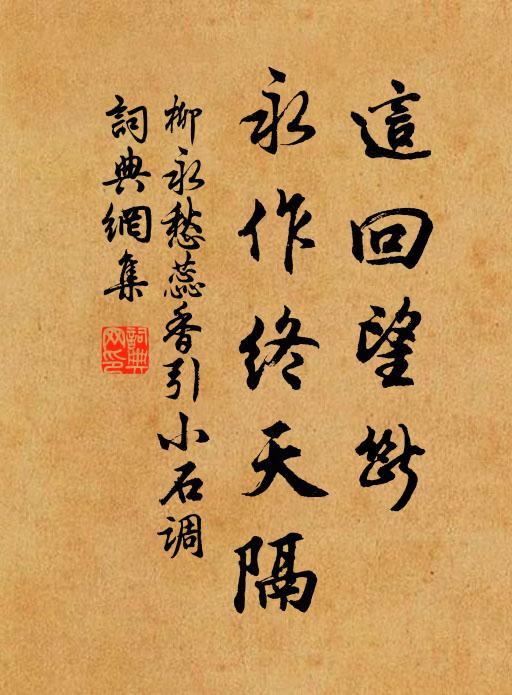 這回望斷
永作終天隔
柳永愁蕊香引小石調
詞典網集
詞典
网印